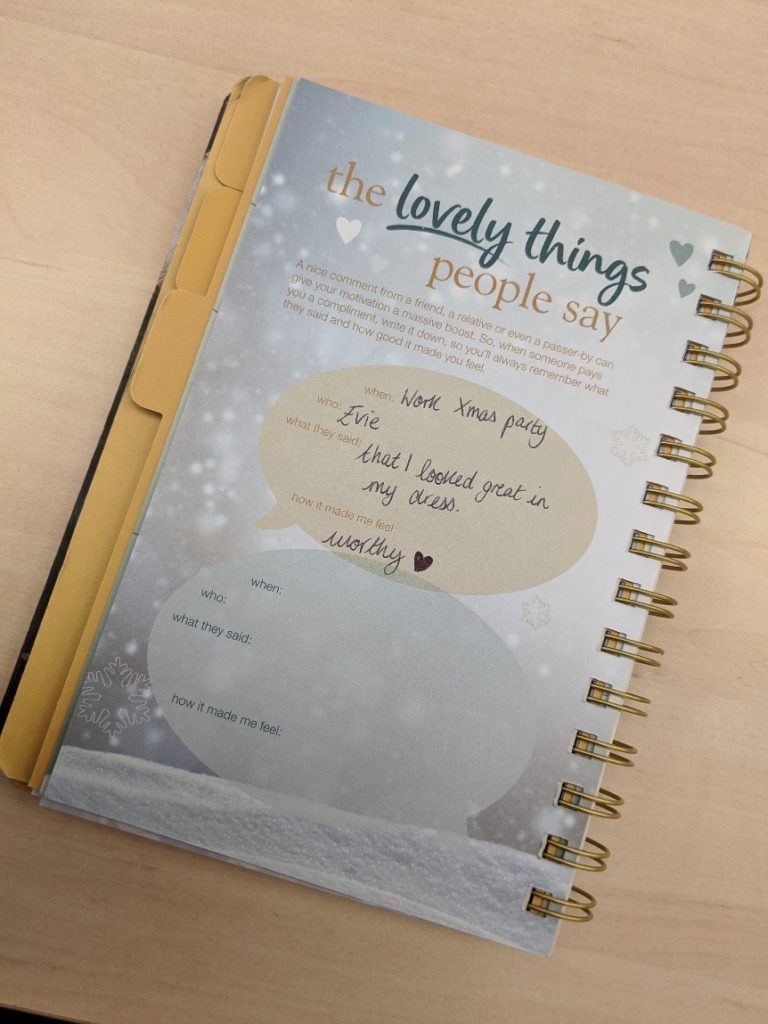 the lovely things
people say
A nice comment from a friend, a relative or even a passer-by can
give your motivation a massive boost. So, when someone pays
you a compliment, write it down, so you'll always remember what
they said and how good it made you feel.
when: Work Xmas party
who: Evie
what they said:
that I looked great in
my dress.
how it made me feel:
worthy ♥
when:
who:
what they said:
how it made me feel: